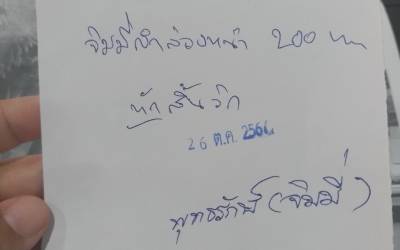 จิมมี่เบิกล่วงหน้า 200 บาท
หักสิ้นวีค
26 ต.ค. 2566
พุทธรักษ์ (จิมมี่)